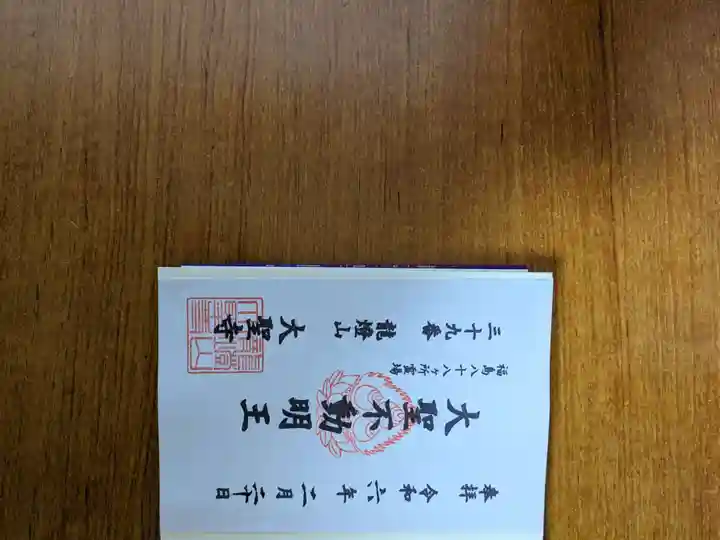 奉拝 令和六年 二月二十日
大聖不動明王
福島八十八ヶ所霊場
三十九番 龍燈山 大聖寺